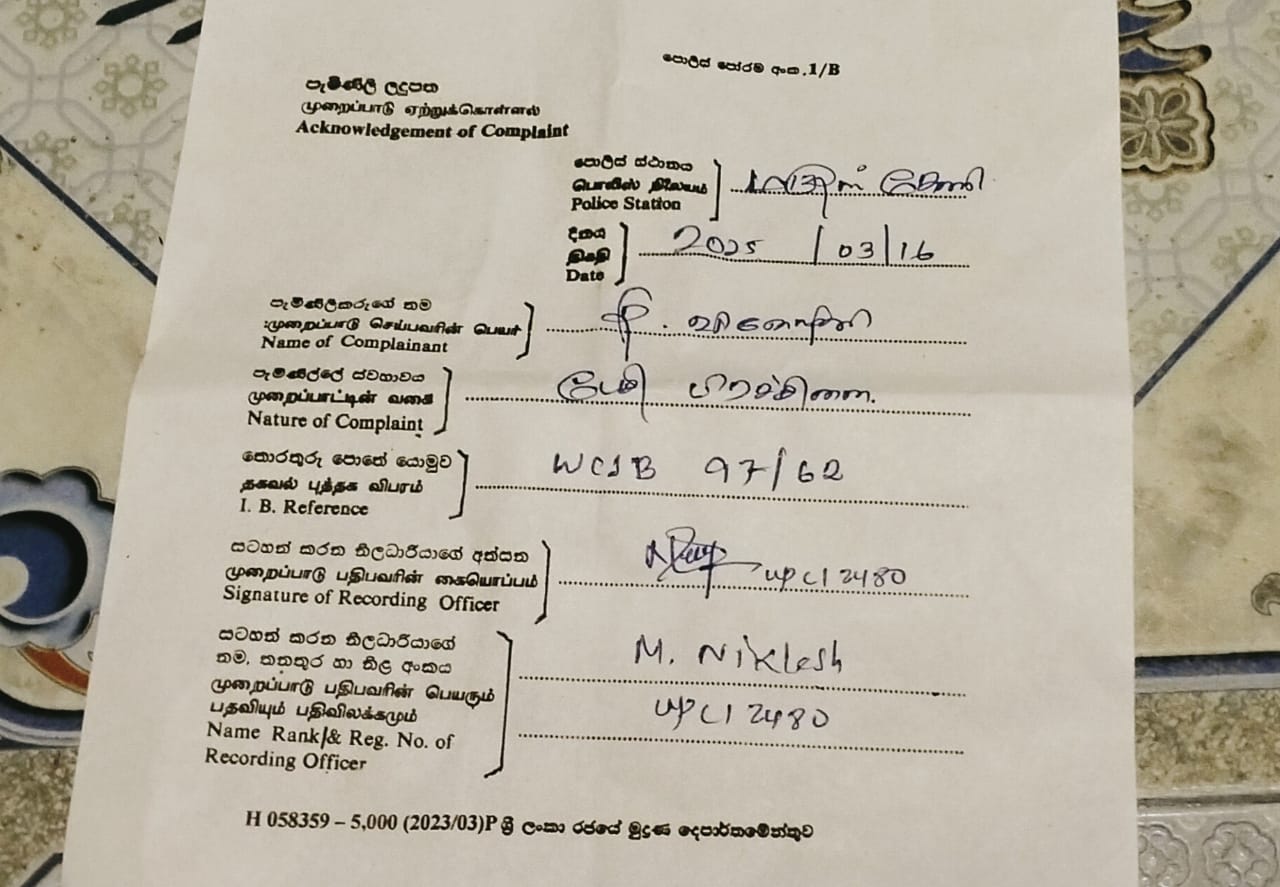 පොලිස් පෝරම අංක.1/B
පැමිණිලි ලදුපත
முறைப்பாடு ஏற்றுக்கொள்ளல்
Acknowledgement of Complaint
පොලිස් ස්ථානය
பொலிஸ் நிலையம்
Police Station
දිනය
திகதி
Date
2025/03/16
පැමිණිලිකරුගේ නම
:முறைப்பாடு செய்பவரின் பெயர்
Name of Complainant
පැමිණිල්ලේ ස්වභාවය
முறைப்பாட்டின் வகை
Nature of Complaint
பிரச்சினை.
තොරතුරු පොතේ යොමුව
தகவல் புத்தக விபரம்
I. B. Reference
WCIB 97/62
සටහන් කරන නිලධාරියාගේ අත්සන
முறைப்பாடு பதிபவரின் கையொப்பம்
Signature of Recording Officer
WPC 12480
සටහන් කරන නිලධාරියාගේ
නම, තනතුර හා නිල අංකය
முறைப்பாடு பதிபவரின் பெயரும்
பதவியும் பதிவிலக்கமும்
Name Rank/& Reg. No. of
Recording Officer
M. Niklesh
WPC 12480
H 058359 – 5,000 (2023/03)P ශ්‍රී ලංකා රජයේ මුද්‍රණ දෙපාර්තමේන්තුව